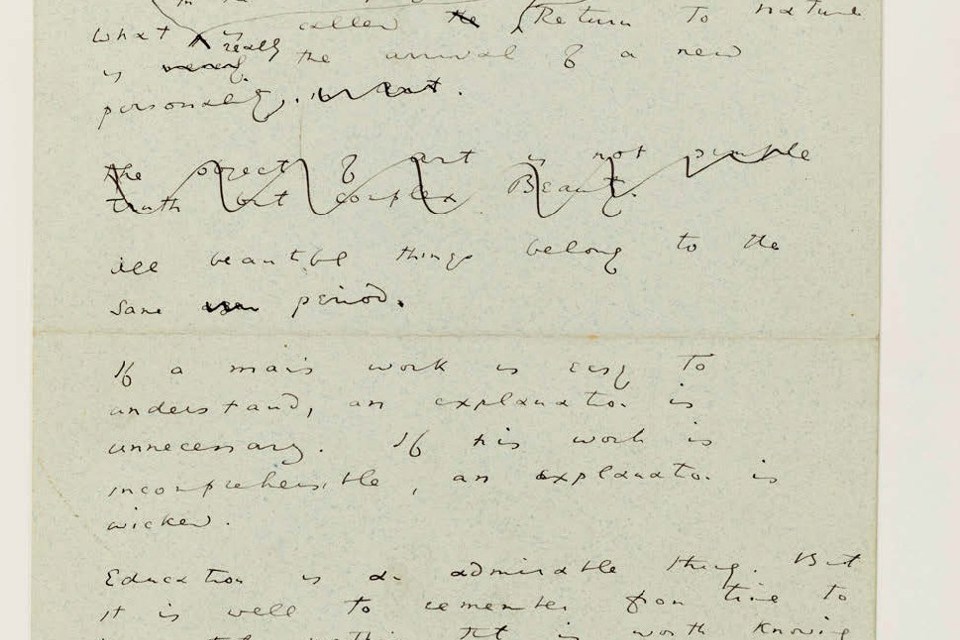 what is called the Return to nature
is really the arrival of a new
personality.
the object of art is not simple
truth but complex Beauty.
all beautiful things belong to the
same period.
If a man's work is easy to
understand, an explanation is
unnecessary. If his work is
incomprehensible, an explanation is
wicked.
Education is an admirable thing. But
it is well to remember from time to
that is worth knowing